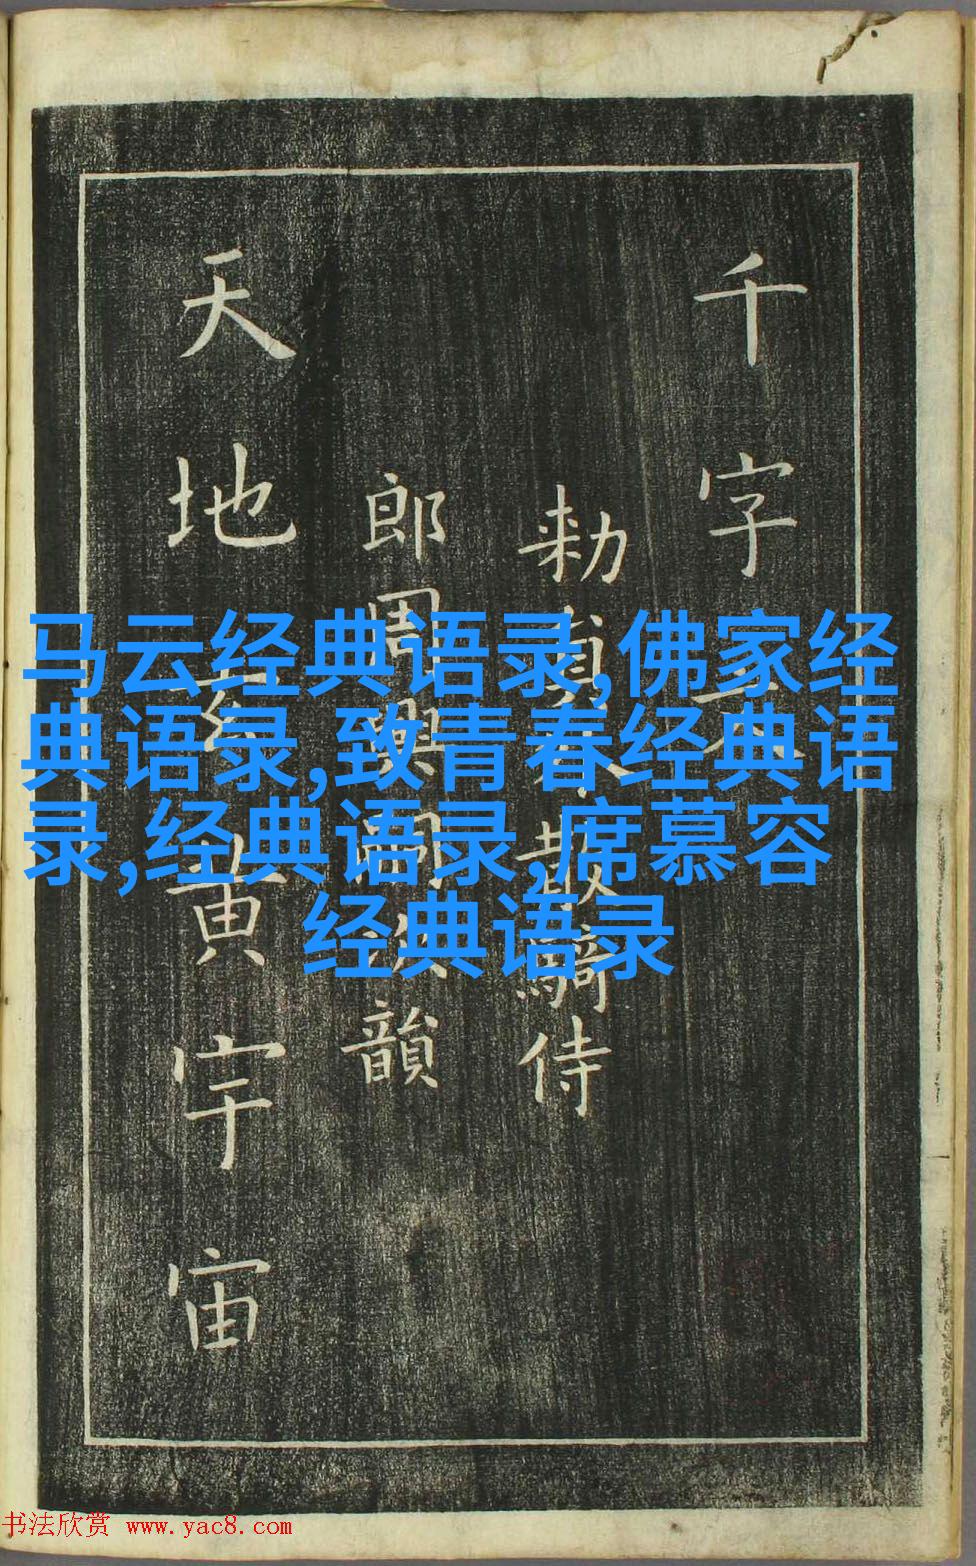 千字文
勅員外散騎侍
郎周興嗣次韻
天地玄黃宇宙
马云经典语录,佛家经
典语录,致青春经典语
录,经典语录,席慕容
经典语录
书法欣赏 www.yac8.com